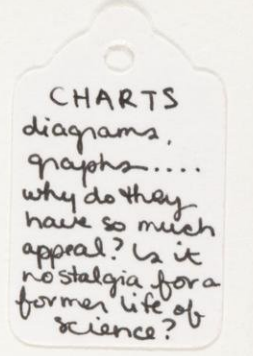 CHARTS
diagrams,
graphs....
why do they
have so much
appeal? Is it
nostalgia for a
former life of
science?